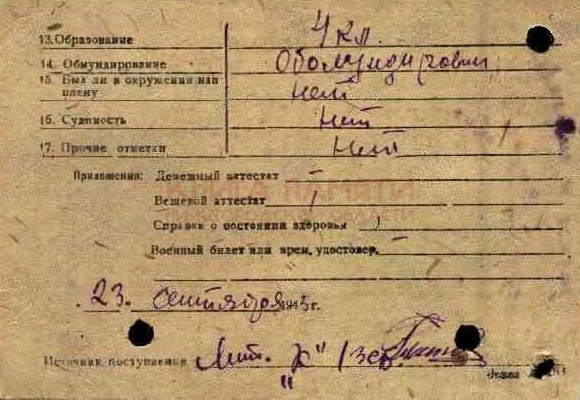 13. Образование 4 кл.
14. Обмундирование
15. Был ли в окружении или плену нет
16. Судимость нет
17. Прочие отметки нет
КНИГА ПАМЯТИ
Приложения: Денежный аттестат —
Вещевой аттестат
Справка о состоянии здоровья
Военный билет или врем. удостовер. —
23. сентября 1943 г.
Источник поступления Лит. "К"